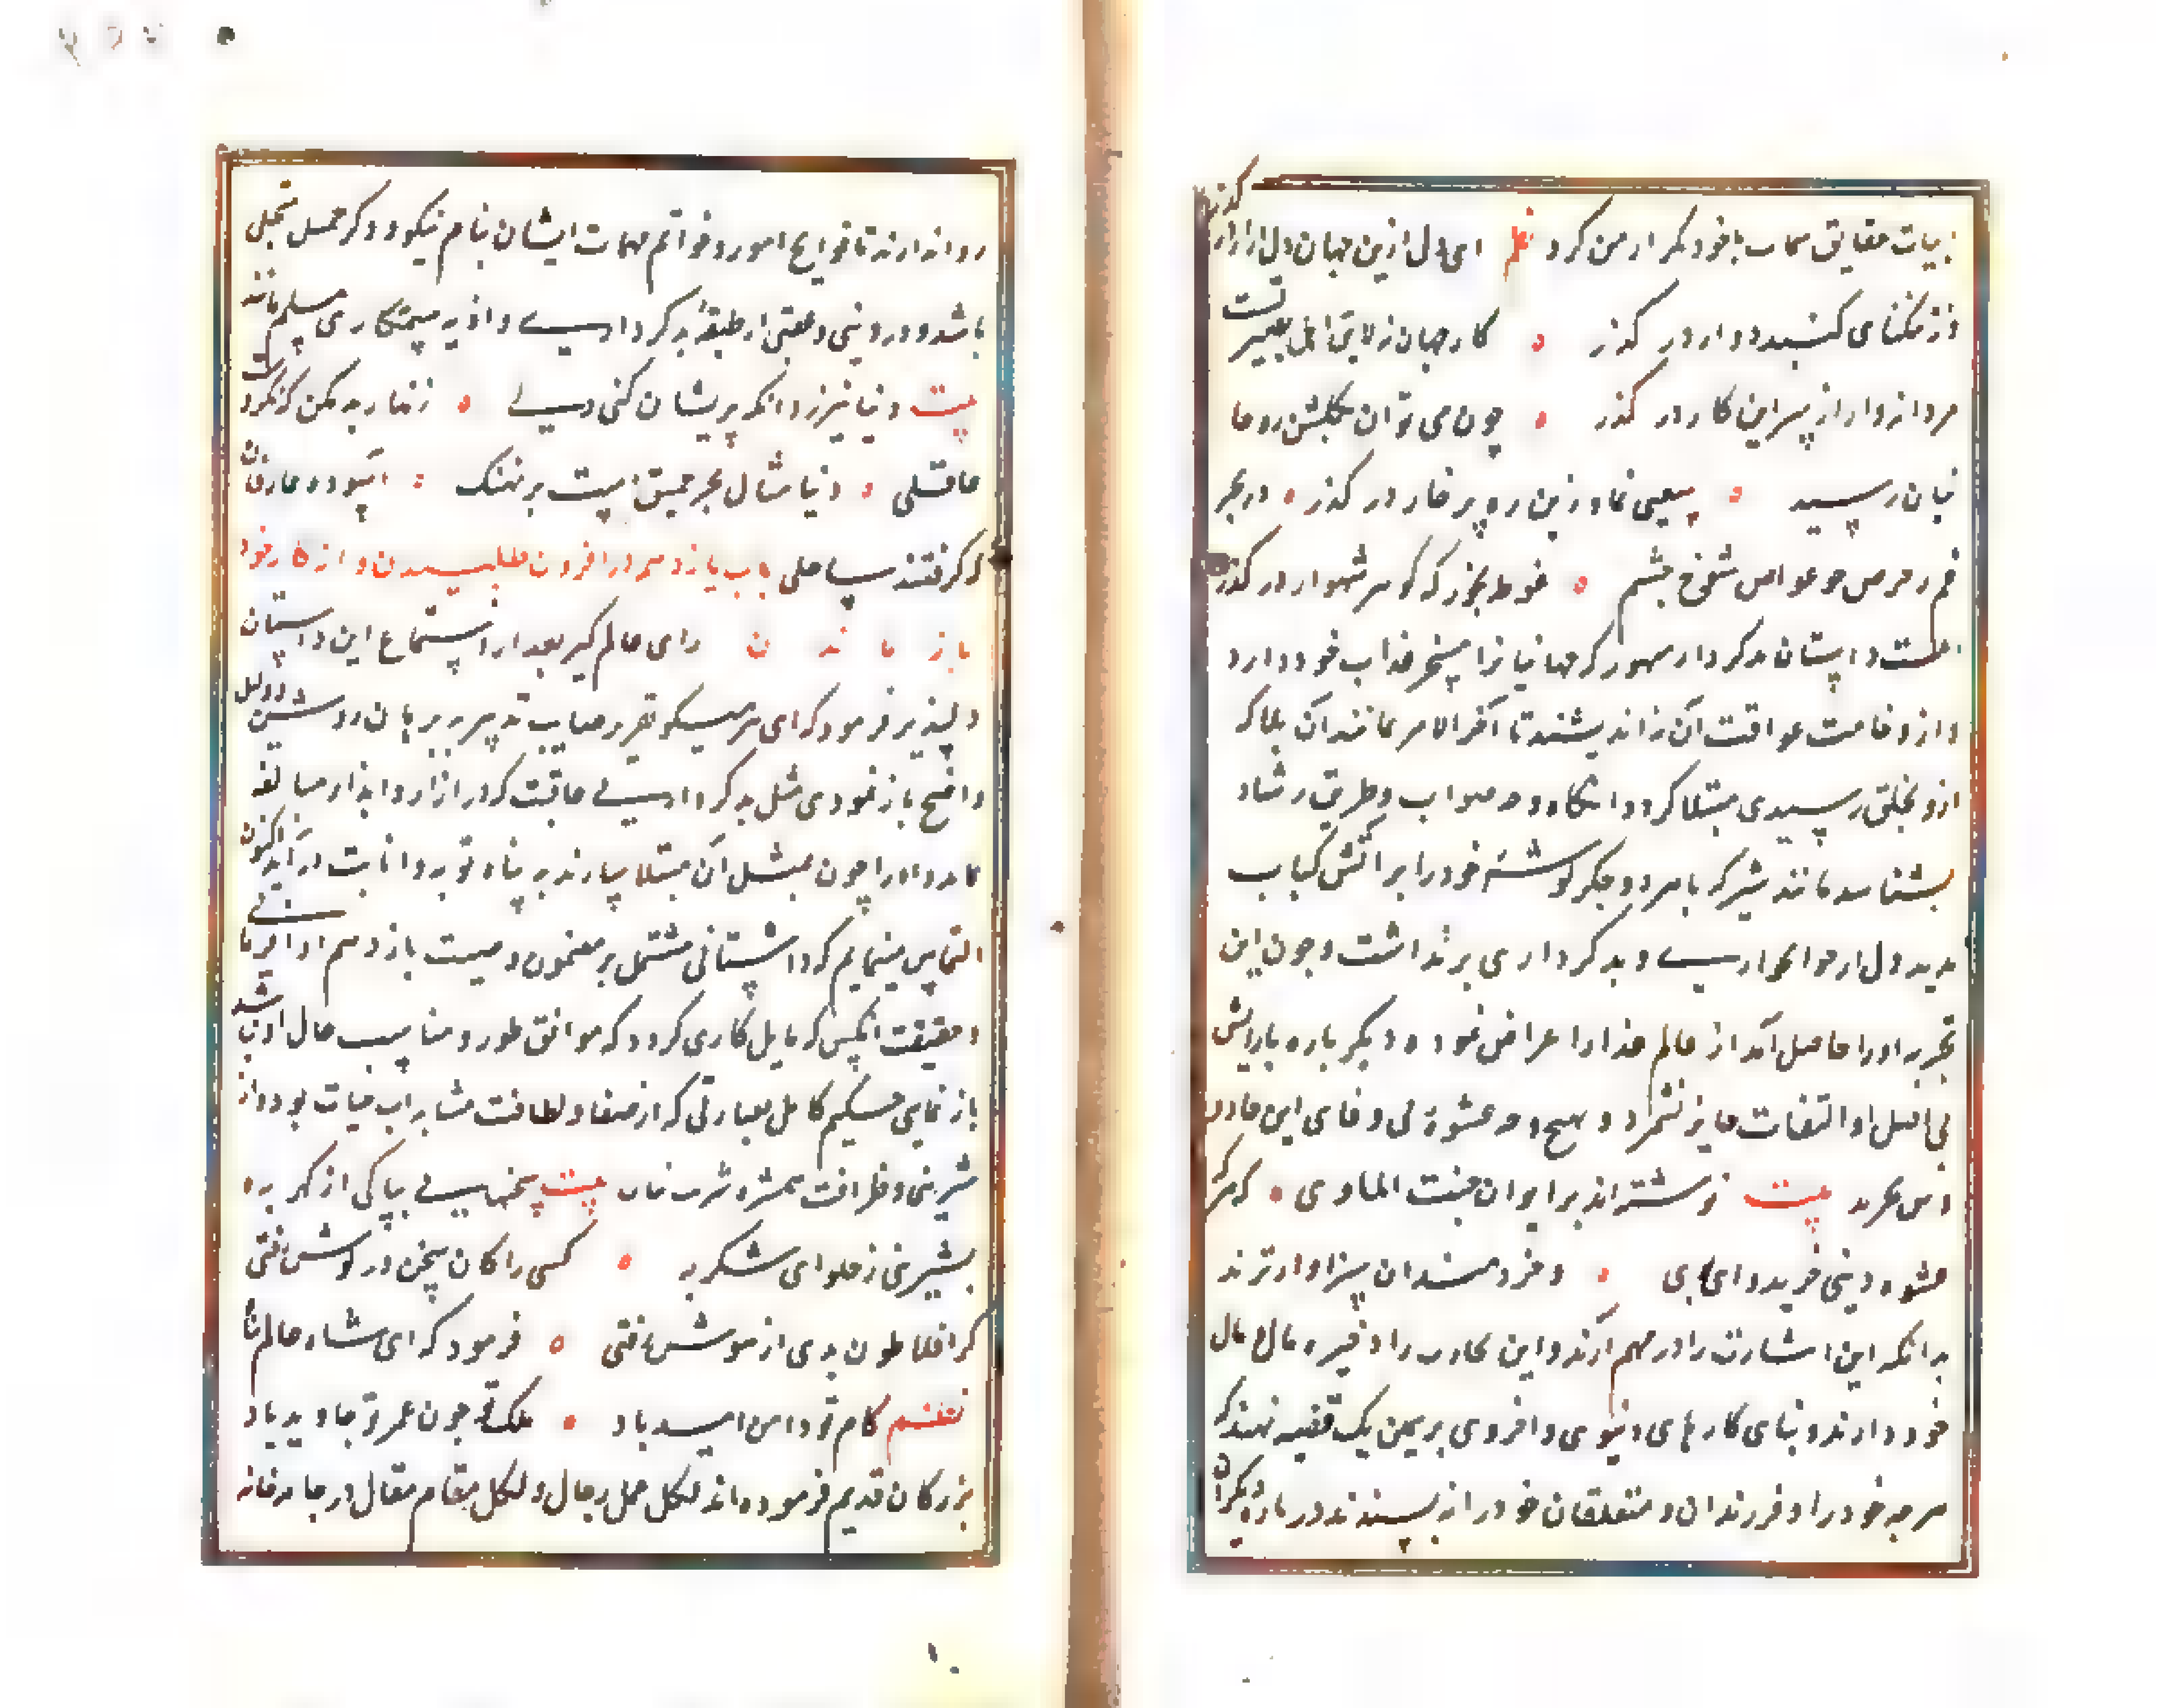 ابیات حقایق سمات با خود تکرار می کرد نظم ای دل ازین جهان دل ازار در گذر
وز تنکنای کنبد دوار در کذر کار جهان ز لایق اهل بصیرتست
مردانه وار از سر این کار در کذر چون می توان بکلشن روحا
نیان رسید سعیی نما و زین ره پر خار در کذر در بحر
غم ز حرص چو غواص شوخ چشم غوطه مخور که کوهر شهوار در کذر
اینست داستان بدکردار که جهانیانرا مسخر عذاب خود دارد
و از وخامت عواقب آن نه اندیشند تا آخر الامر بمانند آن بلا که
ازو بخلق رسیدی مبتلا کردد انکاه وجه صواب و طریق رشاد
بشناسد مانند شیر که تا هر دو جکر کوشهٔ خود را بر آتش کباب
ندید دل از خونخوارسے و بدکرداری برنداشت و چون این
تجربه او را حاصل آمد از عالم غدار اعراض نمود و دیکر باره بارایش
بی اصل او التفات جایز نشمرد و بهیچ وجه عشوهٔ بی وفای این
نخرید بیت نوشته اند بر ایوان جنت الماوی که هرکه
عشوه دینی خرید وای بوی و خردمندان سزاوارترند
بدانکه این اشارت را در فهم آرند و این تجارب را ذخیره حال و مال
خود دارند و بنای کارهای دنیوی و اخروی بر یمن یک قضیه نهند که
هرچه خود را و فرزندان و متعلقان خود را نه پسندند در بارهٔ دیکران
روا ندارند تا فواتح امور و خواتم مهمات ایشان بنام نیکو و ذکر جمیل متجلی
باشد و در دینی و عقبی از طبقهٔ بدکردارسیے و اذیه ستمکاری مسلم مانند
بیت دنیا نیرزد انکه پریشان کنی دلے زنهار بد مکن که نکردست
عاقلی دنیا مثال بحر عمیقست پر نهنک آسوده عارفان
که کرفتند ساحلی باب یازدهم در افزون طلبیدن و از کار خود
باز ماندن رای عالم کیر بعد از استماع این داستان
دلپذیر فرمود که ای حکیم نیکو تقریر صایب تدبیر ببرهان روشن و دلیل
واضح باز نمودی مثل بدکردارسیے عاقبت که در ازار و ایذا مبالغه
نماید و او را چون بمثل آن مبتلا سازند به پناه توبه و انابت درآید اکنون
التماس مینمایم که داستانی مشتمل بر مضمون وصیت یازدهم ادا فرمائے
و حقیقت انکس که مایل کاری کردد که موافق طور و مناسب حال او نباشد
باز نمایی حکیم کامل بعبارتی که از صفا و لطافت مشابه اب حیات بود و از
شیرینی و ظرافت بیت سخنهایے بپاکی از کهر به
بشیرینی ز حلوای شکر به کسی را کان سخن در کوش رفتی
کر افلاطون بدی از هوش رفتی فرمود که ای شاه عالم پناه
نظم کام تو در دامن امید باد ملک تو چون عمر تو جاوید باد
بزرکان قدیم فرموده اند لکل عمل رجال و لکل مقام مقال در جامه خانه